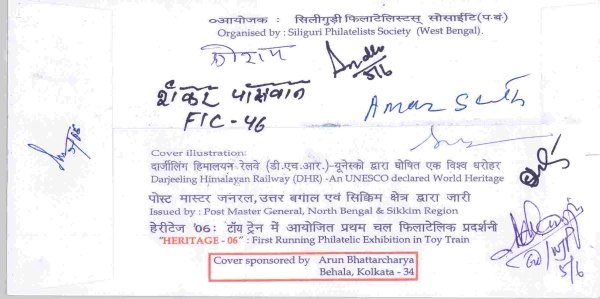 ०आयोजक : सिलीगुड़ी फिलाटेलिस्टस् सोसाईटि(प·बं)
Organised by : Siliguri Philatelists Society (West Bengal).
5/6
शंकर पासवान
FIC - 46
Cover illustration:
दार्जीलिंग हिमालयन रेलवे (डी.एच.आर.)-यूनेस्को द्वारा घोषित एक विश्व धरोहर
Darjeeling Himalayan Railway (DHR) -An UNESCO declared World Heritage
पोस्ट मास्टर जनरल, उत्तर बंगाल एवं सिक्किम क्षेत्र द्वारा जारी
Issued by : Post Master General, North Bengal & Sikkim Region
हेरीटेज '06: टॉय ट्रेन में आयोजित प्रथम चल फिलाटेलिक प्रदर्शनी
"HERITAGE - 06" : First Running Philatelic Exhibition in Toy Train
Cover sponsored by Arun Bhattarcharya
Behala, Kolkata - 34
5/6